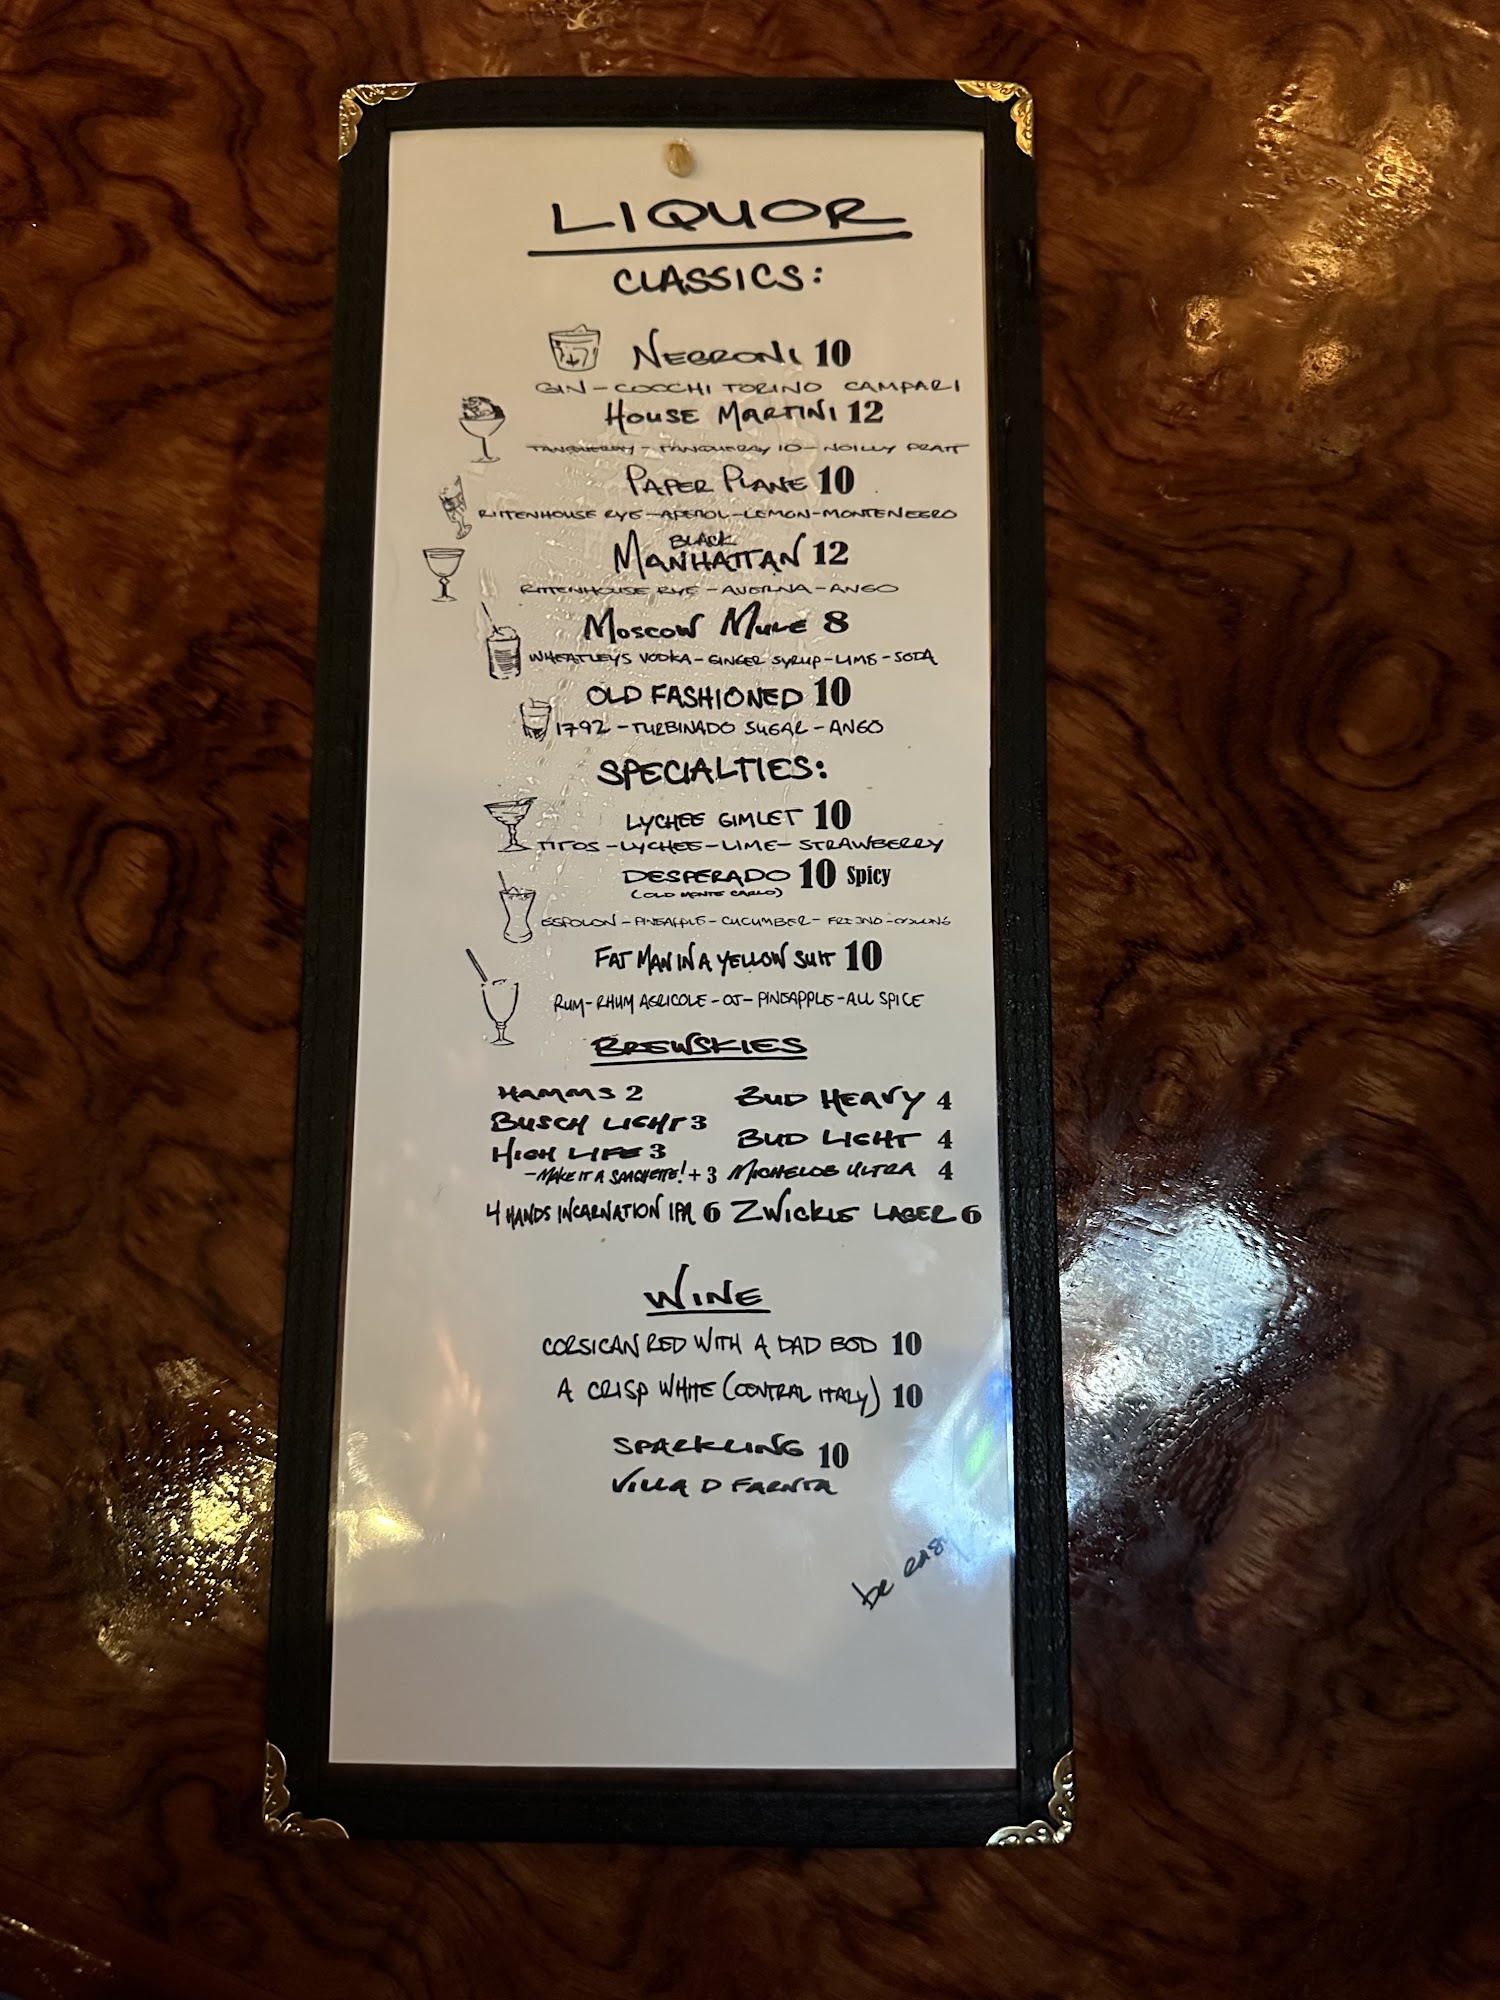 LIQUOR
CLASSICS:
NEGRONI 10
GIN - COCCHI TORINO CAMPARI
HOUSE MARTINI 12
TANQUERAY - TANQUERAY 10 - NOILLY PRATT
PAPER PLANE 10
RITTENHOUSE RYE - APEROL - LEMON - MONTENEGRO
BLACK
MANHATTAN 12
RITTENHOUSE RYE - AVERNA - ANGO
MOSCOW MULE 8
WHEATLEYS VODKA - GINGER SYRUP - LIME - SODA
OLD FASHIONED 10
1792 - TURBINADO SUGAR - ANGO
SPECIALTIES:
LYCHEE GIMLET 10
TITOS - LYCHEE - LIME - STRAWBERRY
DESPERADO 10 Spicy
(OLD MONTE CARLO)
ESPOLON - PINEAPPLE - CUCUMBER -
FAT MAN IN A YELLOW SUIT 10
RUM - RHUM AGRICOLE - OJ - PINEAPPLE - ALL SPICE
BREWSKIES
HAMMS 2
BUSCH LIGHT 3
HIGH LIFE 3
- MAKE IT A SPAGHETTE! + 3
4 HANDS INCARNATION IPA 6
BUD HEAVY 4
BUD LIGHT 4
MICHELOB ULTRA 4
ZWICKLE LAGER 6
WINE
CORSICAN RED WITH A DAD BOD 10
A CRISP WHITE (CENTRAL ITALY) 10
SPARKLING 10
VILLA D FARNIA
be easy